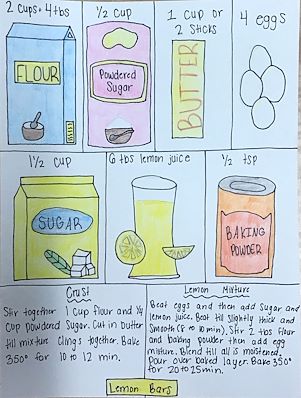 2 cups + 4 tbs
1/2 cup
1 cup or
2 sticks
4 eggs
FLOUR
Powdered
Sugar
BUTTER
1 1/2 cup
6 tbs lemon juice
1/2 tsp
SUGAR
BAKING
POWDER
Crust
Stir together 1 cup flour and 1/4
cup powdered Sugar. Cut in butter
till mixture clings together. Bake
350° for 10 to 12 min.
Lemon Mixture
Beat eggs and then add Sugar and
lemon juice. Beat til slightly thick and
Smooth (8 to 10 min). Stir 2 tbs flour
and baking powder then add egg
mixture. Blend till all is moistened.
Pour over baked layer. Bake 350°
for 20 to 25 min.
Lemon Bars